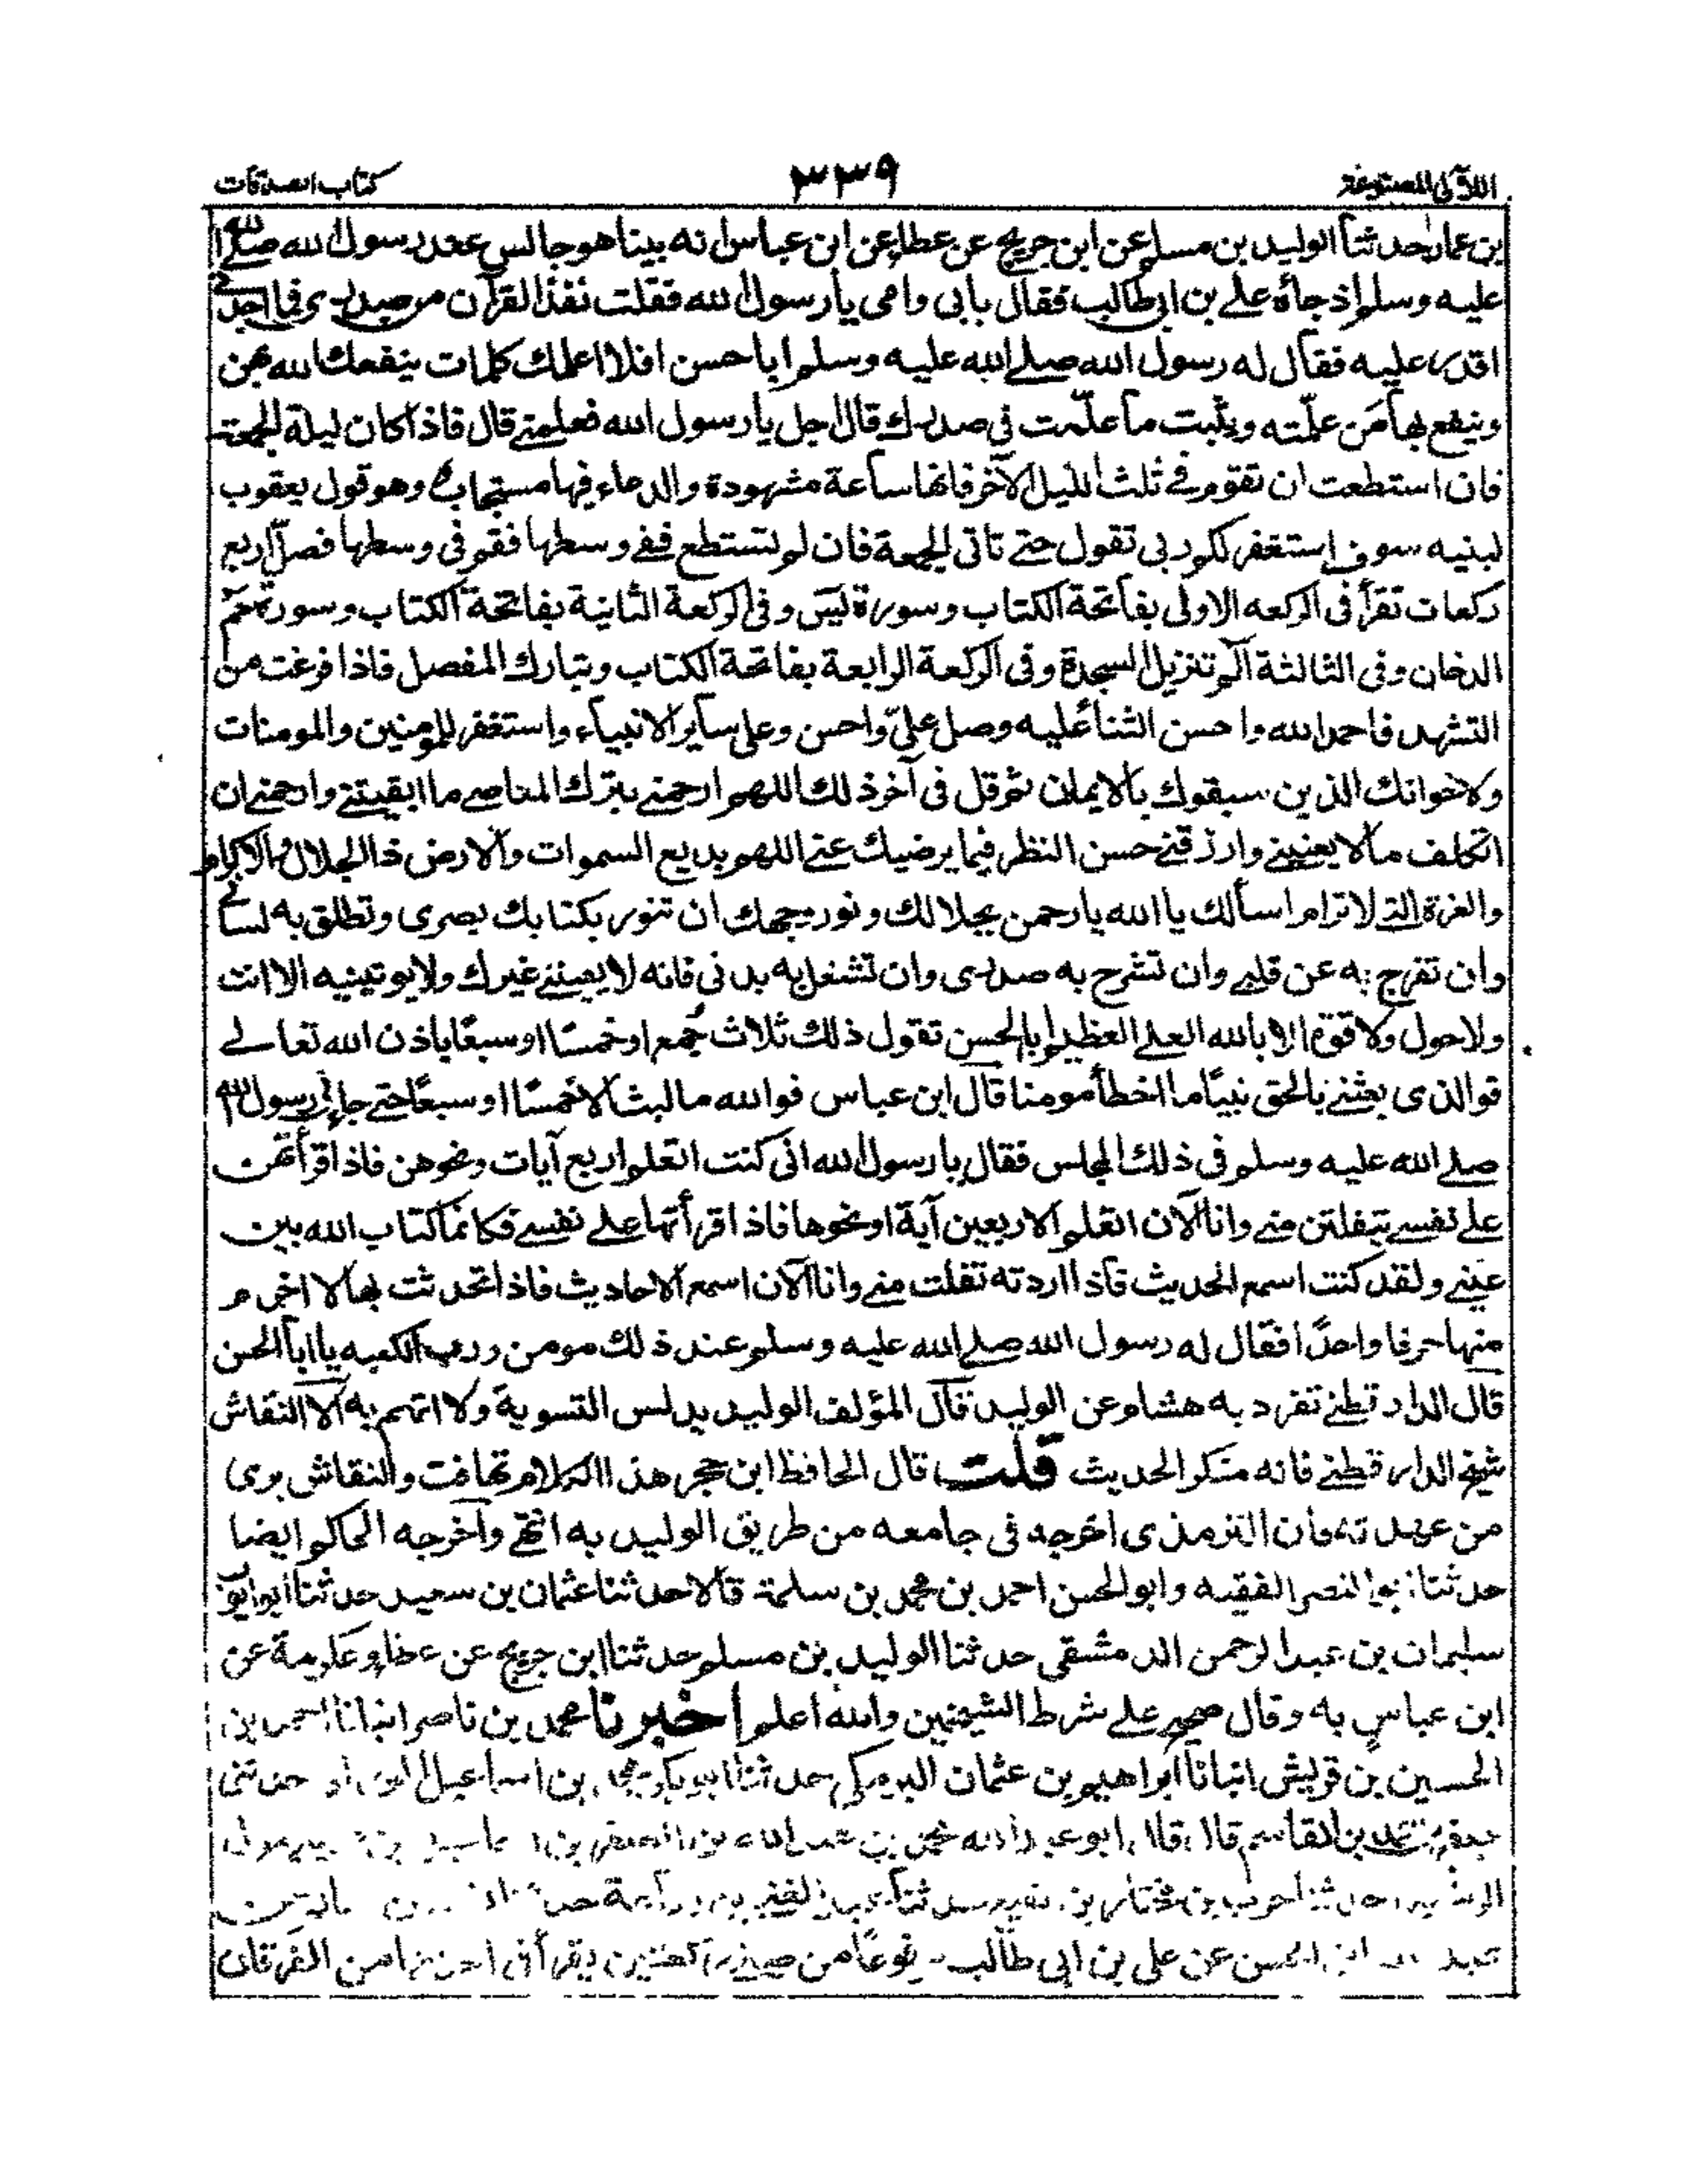 اللآلى المصنوعة
٣٣٩
كتاب الصدقات
بن عمار حدثنا الوليد بن مسلم عن ابن جريج عن عطاء عن ابن عباس انه بينا هو جالس عند رسول الله صلى الله
عليه وسلم اذ جاءه على بن ابى طالب فقال بابى وامى يا رسول الله فقلت تفلت القرآن من صدرى فما اجدنى
اقدر عليه فقال له رسول الله صلى الله عليه وسلم ابا حسن افلا اعلمك كلمات ينفعك الله بهن
وينفع بها من علمته ويثبت ما علمت فى صدرك قال اجل يا رسول الله فعلمنى قال فاذا كان ليلة الجمعة
فان استطعت ان تقوم فى ثلث الليل الآخر فانها ساعة مشهودة والدعاء فيها مستجاب وهو قول يعقوب
لبنيه سوف استغفر لكم ربى تقول حتى تاتى الجمعة فان لم تستطع ففى وسطها فقم فى وسطها فصل اربع
ركعات تقرأ فى الركعه الاولى بفاتحة الكتاب وسورة يس وفى الركعة الثانية بفاتحة الكتاب وسورة حم
الدخان وفى الثالثة آلم تنزيل السجدة وفى الركعة الرابعة بفاتحة الكتاب وتبارك المفصل فاذا فرغت من
التشهد فاحمد الله واحسن الثناء عليه وصل علىّ واحسن وعلى ساير الانبياء واستغفر للمومنين والمومنات
ولاخوانك الذين سبقوك بالايمان ثم قل فى آخر ذلك اللهم ارحمنى بترك المعاصى ما ابقيتنى وارحمنى ان
اتكلف مالا يعنينى وارزقنى حسن النظر فيما يرضيك عنى اللهم بديع السموات والارض ذا الجلال والاكرام
والعزة التى لا ترام اسألك يا الله يا رحمن بجلالك ونور وجهك ان تنور بكتابك بصرى وتطلق به لسانى
وان تفرج به عن قلبى وان تشرح به صدرى وان تشغل به بدنى فانه لا يعيننى غيرك ولا يوتينيه الا انت
ولا حول ولا قوة الا بالله العلى العظيم ابا الحسن تقول ذلك ثلاث جمع او خمسًا او سبعًا باذن الله تعالى
فو الذى بعثنى بالحق نبيًا ما اخطأ مومنا قال ابن عباس فو الله ما لبث الا خمسًا او سبعًا حتى جاء رسول الله
صلى الله عليه وسلم فى ذلك المجلس فقال يا رسول الله انى كنت اتعلم اربع آيات ونحوهن فاذا قرأتهن
على نفسى يتفلتن منى وانا الآن اتعلم الاربعين آية او نحوها فاذا قرأتها على نفسى فكانما كتاب الله بين
عينى ولقد كنت اسمع الحديث فاذا اردته تفلت منى وانا الآن اسمع الاحاديث فاذا تحدثت بها لا اخرم
منها حرفا واحدًا فقال له رسول الله صلى الله عليه وسلم عند ذلك مومن ورب الكعبه يا ابا الحسن
قال الدارقطنى تفرد به هشام عن الوليد قال المؤلف الوليد يدلس التسوية ولا اتهم به الا النقاش
شيخ الدارقطنى فانه منكر الحديث قلت قال الحافظ ابن حجر هذا الكلام تهافت والنقاش برى
من عهدته فان الترمذى اخرجه فى جامعه من طريق الوليد به انتهى واخرجه الحاكم ايضا
حدثنا ابو النضر الفقيه وابو الحسن احمد بن محمد بن سلمة قالا حدثنا عثمان بن سعيد حدثنا ابو ايوب
سليمان بن عبد الرحمن الدمشقى حدثنا الوليد بن مسلم حدثنا ابن جريج عن عطاء وعكرمة عن
ابن عباس به وقال صحيح على شرط الشيخين والله اعلم اخبرنا محمد بن ناصر انبانا احمد بن
الحسين بن قريش انبانا ابراهيم بن عثمان البرمكى حدثنا ابو بكر محمد بن اسماعيل حدثنى
بن القاسم قالا ابو عبد الله
حدثنا بن مختار بن
الحسن عن على بن ابى طالب من يقرأ فى من الفرقان